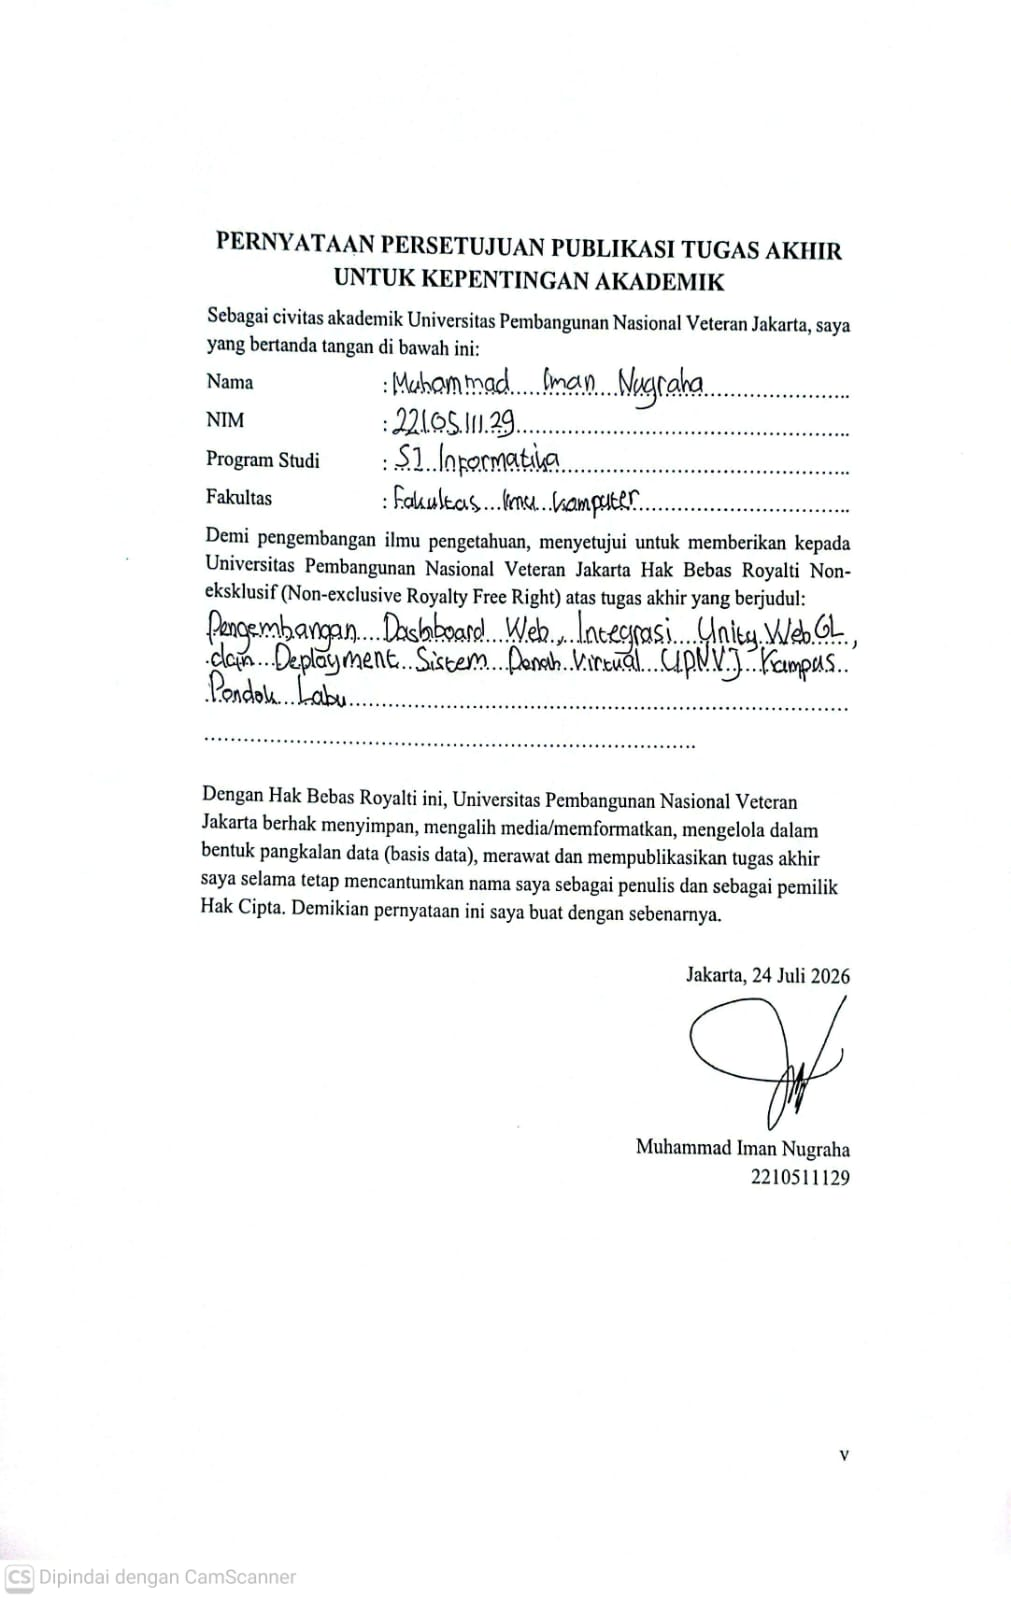 PERNYATAAN PERSETUJUAN PUBLIKASI TUGAS AKHIR
UNTUK KEPENTINGAN AKADEMIK
Sebagai civitas akademik Universitas Pembangunan Nasional Veteran Jakarta, saya
yang bertanda tangan di bawah ini:
Nama : Muhammad Iman Nugraha
NIM : 2210511129
Program Studi : S1 Informatika
Fakultas : Fakultas Ilmu Komputer
Demi pengembangan ilmu pengetahuan, menyetujui untuk memberikan kepada
Universitas Pembangunan Nasional Veteran Jakarta Hak Bebas Royalti Non-
eksklusif (Non-exclusive Royalty Free Right) atas tugas akhir yang berjudul:
Pengembangan Dashboard Web, Integrasi Unity WebGL,
dan Deployment Sistem Denah Virtual UPNVJ Kampus
Pondok Labu
Dengan Hak Bebas Royalti ini, Universitas Pembangunan Nasional Veteran
Jakarta berhak menyimpan, mengalih media/memformatkan, mengelola dalam
bentuk pangkalan data (basis data), merawat dan mempublikasikan tugas akhir
saya selama tetap mencantumkan nama saya sebagai penulis dan sebagai pemilik
Hak Cipta. Demikian pernyataan ini saya buat dengan sebenarnya.
Jakarta, 24 Juli 2026
Muhammad Iman Nugraha
2210511129
v
CS Dipindai dengan CamScanner